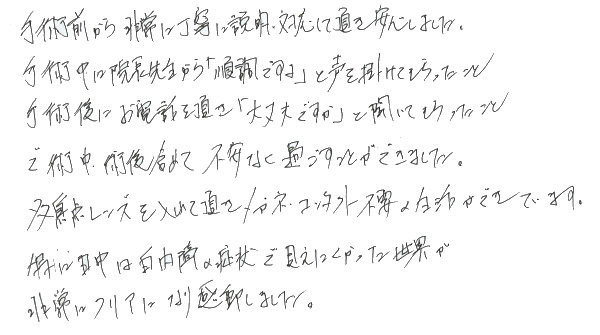 手術前から非常に丁寧に説明、対応して頂き安心しました。
手術中に院長先生から「順調ですよ」と声を掛けてもらったこと
手術後にお電話を頂き「大丈夫ですか」と聞いてもらったこと
で術中、術後含めて不安なく過ごすことができました。
多焦点レンズを入れて頂きメガネ、コンタクト不要の生活ができています。
特に日中は白内障の症状で見えにくかった世界が
非常にクリアになり感動しました。